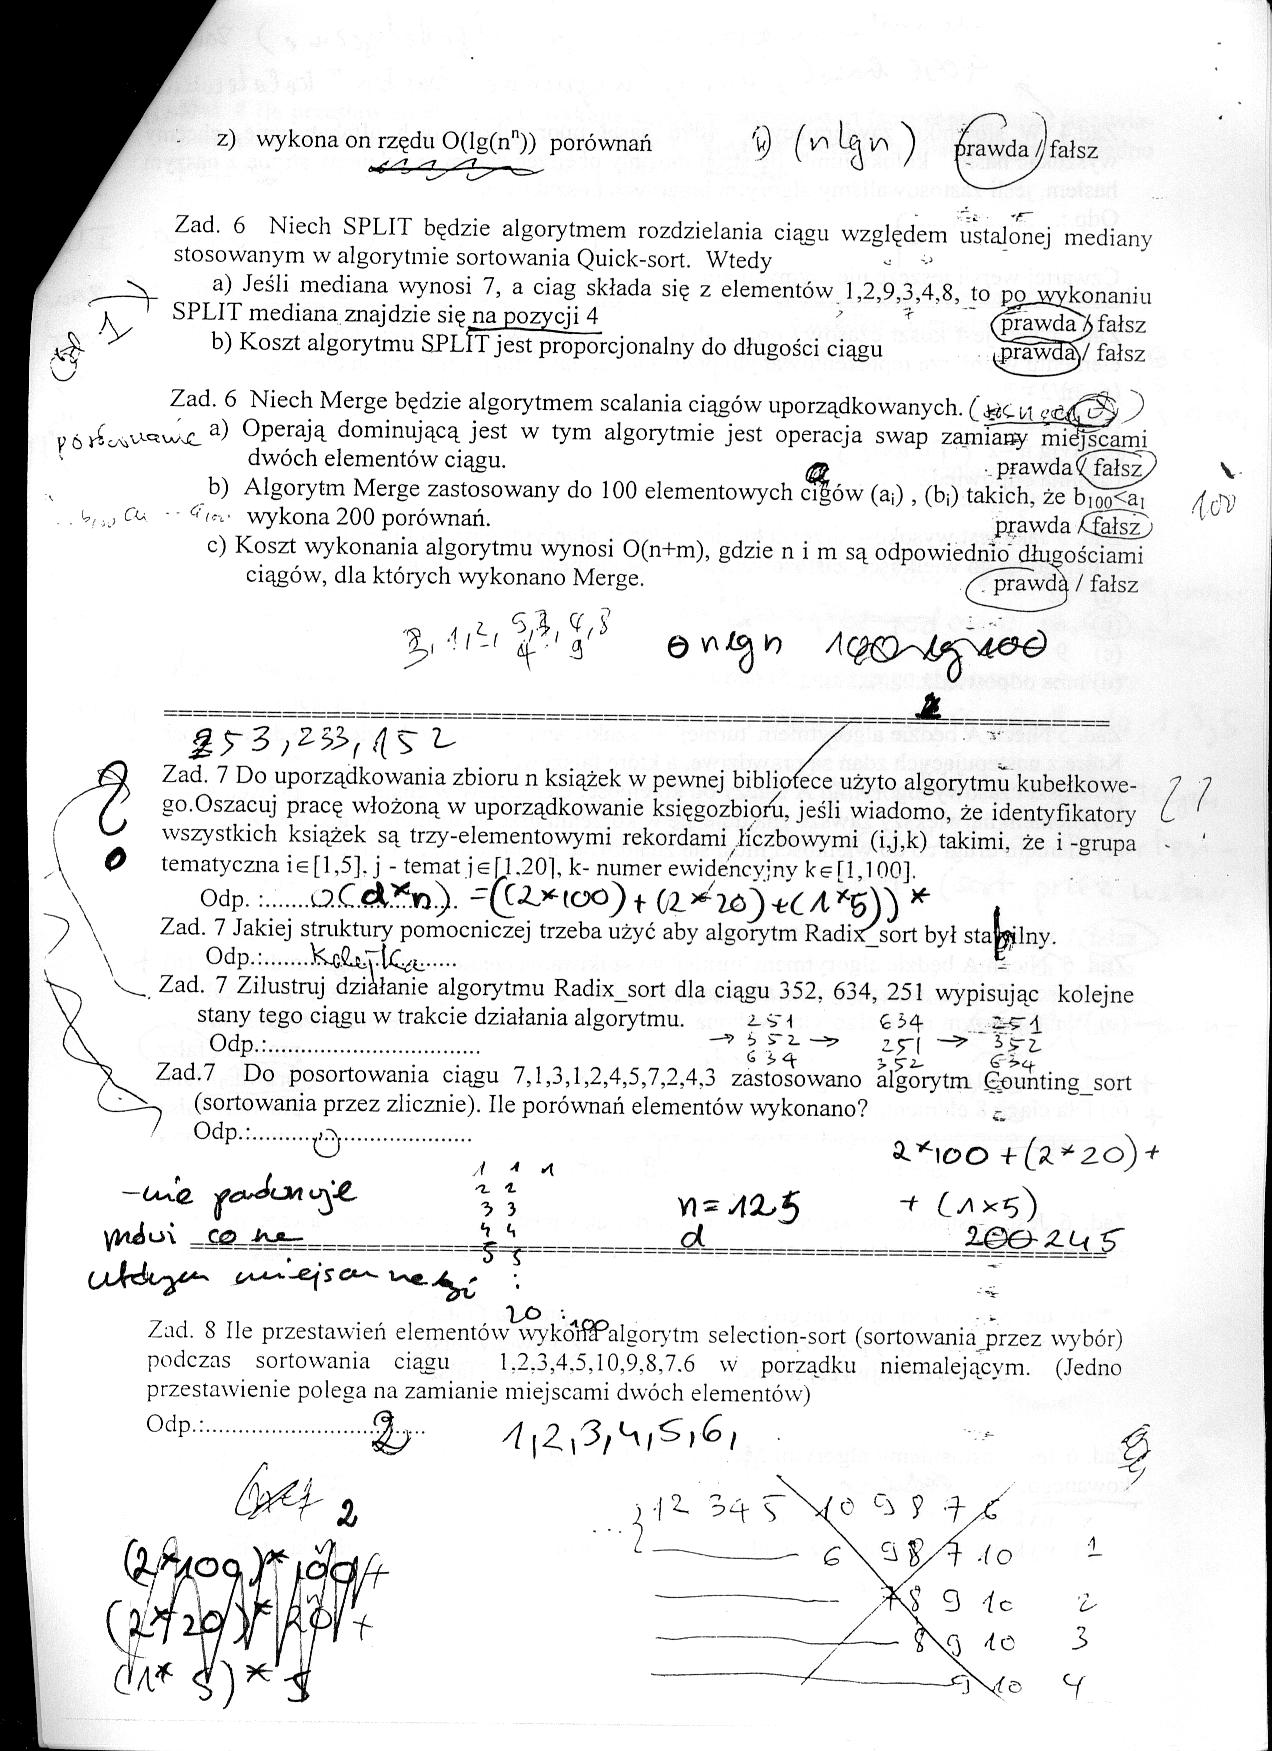 z) wykona on rzędu O(lg(nⁿ)) porównań (n lg n) prawda / fałsz
Zad. 6 Niech SPLIT będzie algorytmem rozdzielania ciągu względem ustalonej mediany
stosowanym w algorytmie sortowania Quick-sort. Wtedy
a) Jeśli mediana wynosi 7, a ciag składa się z elementów 1,2,9,3,4,8, to po wykonaniu
SPLIT mediana znajdzie się na pozycji 4 prawda / fałsz
od 1
b) Koszt algorytmu SPLIT jest proporcjonalny do długości ciągu prawda / fałsz
Zad. 6 Niech Merge będzie algorytmem scalania ciągów uporządkowanych.
porównanie a) Operają dominującą jest w tym algorytmie jest operacja swap zamiany miejscami
dwóch elementów ciągu. prawda / fałsz
b) Algorytm Merge zastosowany do 100 elementowych ciągów (aᵢ) , (bᵢ) takich, że b₁₀₀<a₁
wykona 200 porównań. prawda / fałsz 100
c) Koszt wykonania algorytmu wynosi O(n+m), gdzie n i m są odpowiednio długościami
ciągów, dla których wykonano Merge. prawda / fałsz
n lg n 100 lg 100
253,233,152
Zad. 7 Do uporządkowania zbioru n książek w pewnej bibliotece użyto algorytmu kubełkowe-
go.Oszacuj pracę włożoną w uporządkowanie księgozbioru, jeśli wiadomo, że identyfikatory ??
wszystkich książek są trzy-elementowymi rekordami liczbowymi (i,j,k) takimi, że i -grupa
tematyczna i∈[1,5], j - temat j∈[1,20], k- numer ewidencyjny k∈[1,100].
Odp. :.......O(d*n). =((2*100)+(2*20)+(1*5))*
Zad. 7 Jakiej struktury pomocniczej trzeba użyć aby algorytm Radix_sort był stabilny.
Odp.:.......Kolejka......
Zad. 7 Zilustruj działanie algorytmu Radix_sort dla ciągu 352, 634, 251 wypisując kolejne
stany tego ciągu w trakcie działania algorytmu. 251 634 251
Odp.:................................ → 352 → 251 → 352
634 352 634
Zad.7 Do posortowania ciągu 7,1,3,1,2,4,5,7,2,4,3 zastosowano algorytm Counting_sort
(sortowania przez zlicznie). Ile porównań elementów wykonano?
Odp.:..........0....................
2*100 + (2*20)+
1 1 1
-nie porównuje 2 2
3 3 n=125 + (1×5)
mówi co na 4 4 d 200 245
5 5
którym miejscu ma być :
20 100
Zad. 8 Ile przestawień elementów wykona algorytm selection-sort (sortowania przez wybór)
podczas sortowania ciągu 1,2,3,4,5,10,9,8,7,6 w porządku niemalejącym. (Jedno
przestawienie polega na zamianie miejscami dwóch elementów)
Odp.:..........................2..... 1,2,3,4,5,6,
2
1 2 3 4 5 10 9 8 7 6
(2*100)*100+ 6 9 8 7 10 1
(2*20)*20+ 7 8 9 10 2
8 9 10 3
(1*5)*5 9 10 4